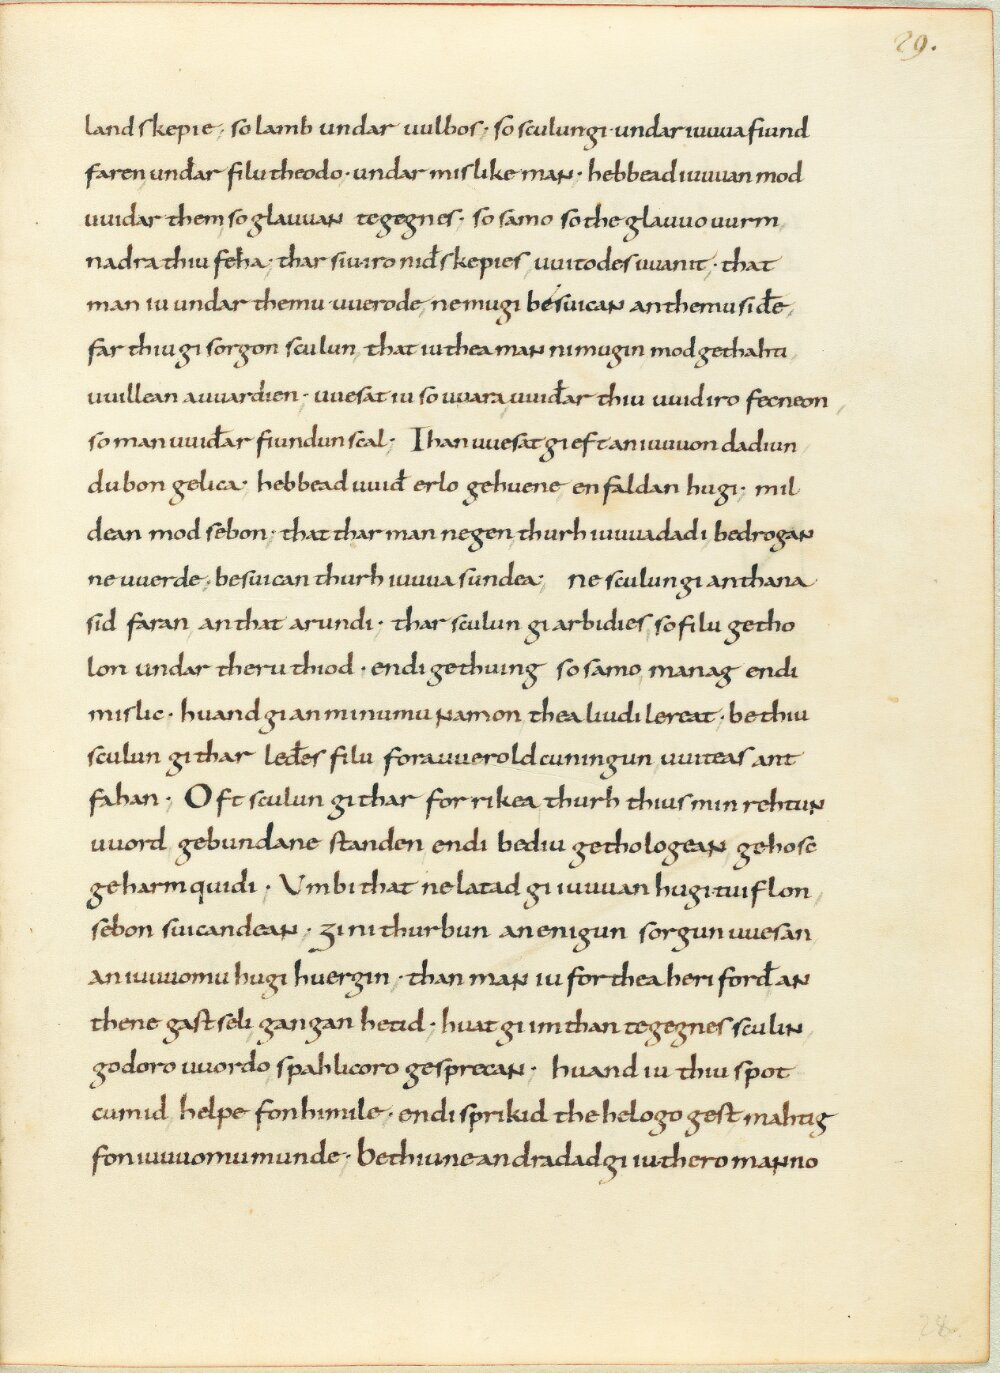 29.
landskepie · so lamb undar uulbos · so sculun gi undar iuuua fiund
faren undar filu theodo · undar mislike man · hebbead iuuuan mod
uuidar them so glauuan tegegnes · so samo so the glauuo uurm
nadra thiu feha · thar siu iro niđskepies uuitodes uuanit · that
man iu undar themu uuerode ne mugi besuican an themu siđe
far thiu gi sorgon sculun that iu thea man ni mugin modgethahti
uuillean auuardien · uuesat iu so uuara uuiđar thiu uuid iro fecneon
so man uuiđar fiundun scal · Than uuesat gi eft an iuuuon dadiun
dubon gelica · hebbead uuiđ erlo gehuene enfaldan hugi · mil
dean mod sebon · that thar man negen thurh iuuua dadi bedrogan
ne uuerde · besuican thurh iuuua sundea · ne sculun gi an thana
sid faran an that arundi · thar sculun gi arbidies so filu getho
lon undar theru thiod · endi gethuing so samo manag endi
mislic · huand gi an minumu namon thea liudi lereat · be thiu
sculun gi thar leđes filu fora uueroldcuningun uuiteas ant
fahan · Oft sculun gi thar for rikea thurh thius min rehtun
uuord gebundane standen endi bediu gethologean gehosc
ge harmquidi · Umbi that ne latad gi iuuuan hugi tuiflon
sebon suicandean · gi ni thurbun an enigun sorgun uuesan
an iuuuomu hugi huergin · than man iu for thea heri forđ an
thene gastseli gangan hetid · huat gi im than tegegnes sculin
godoro uuordo spahlicoro gesprecan · huand iu thiu spot
cumid helpe fon himile · endi sprikid the helogo gest mahtig
fon iuuuomu munde · Bethiu ne andradad gi iu thero manno
28.